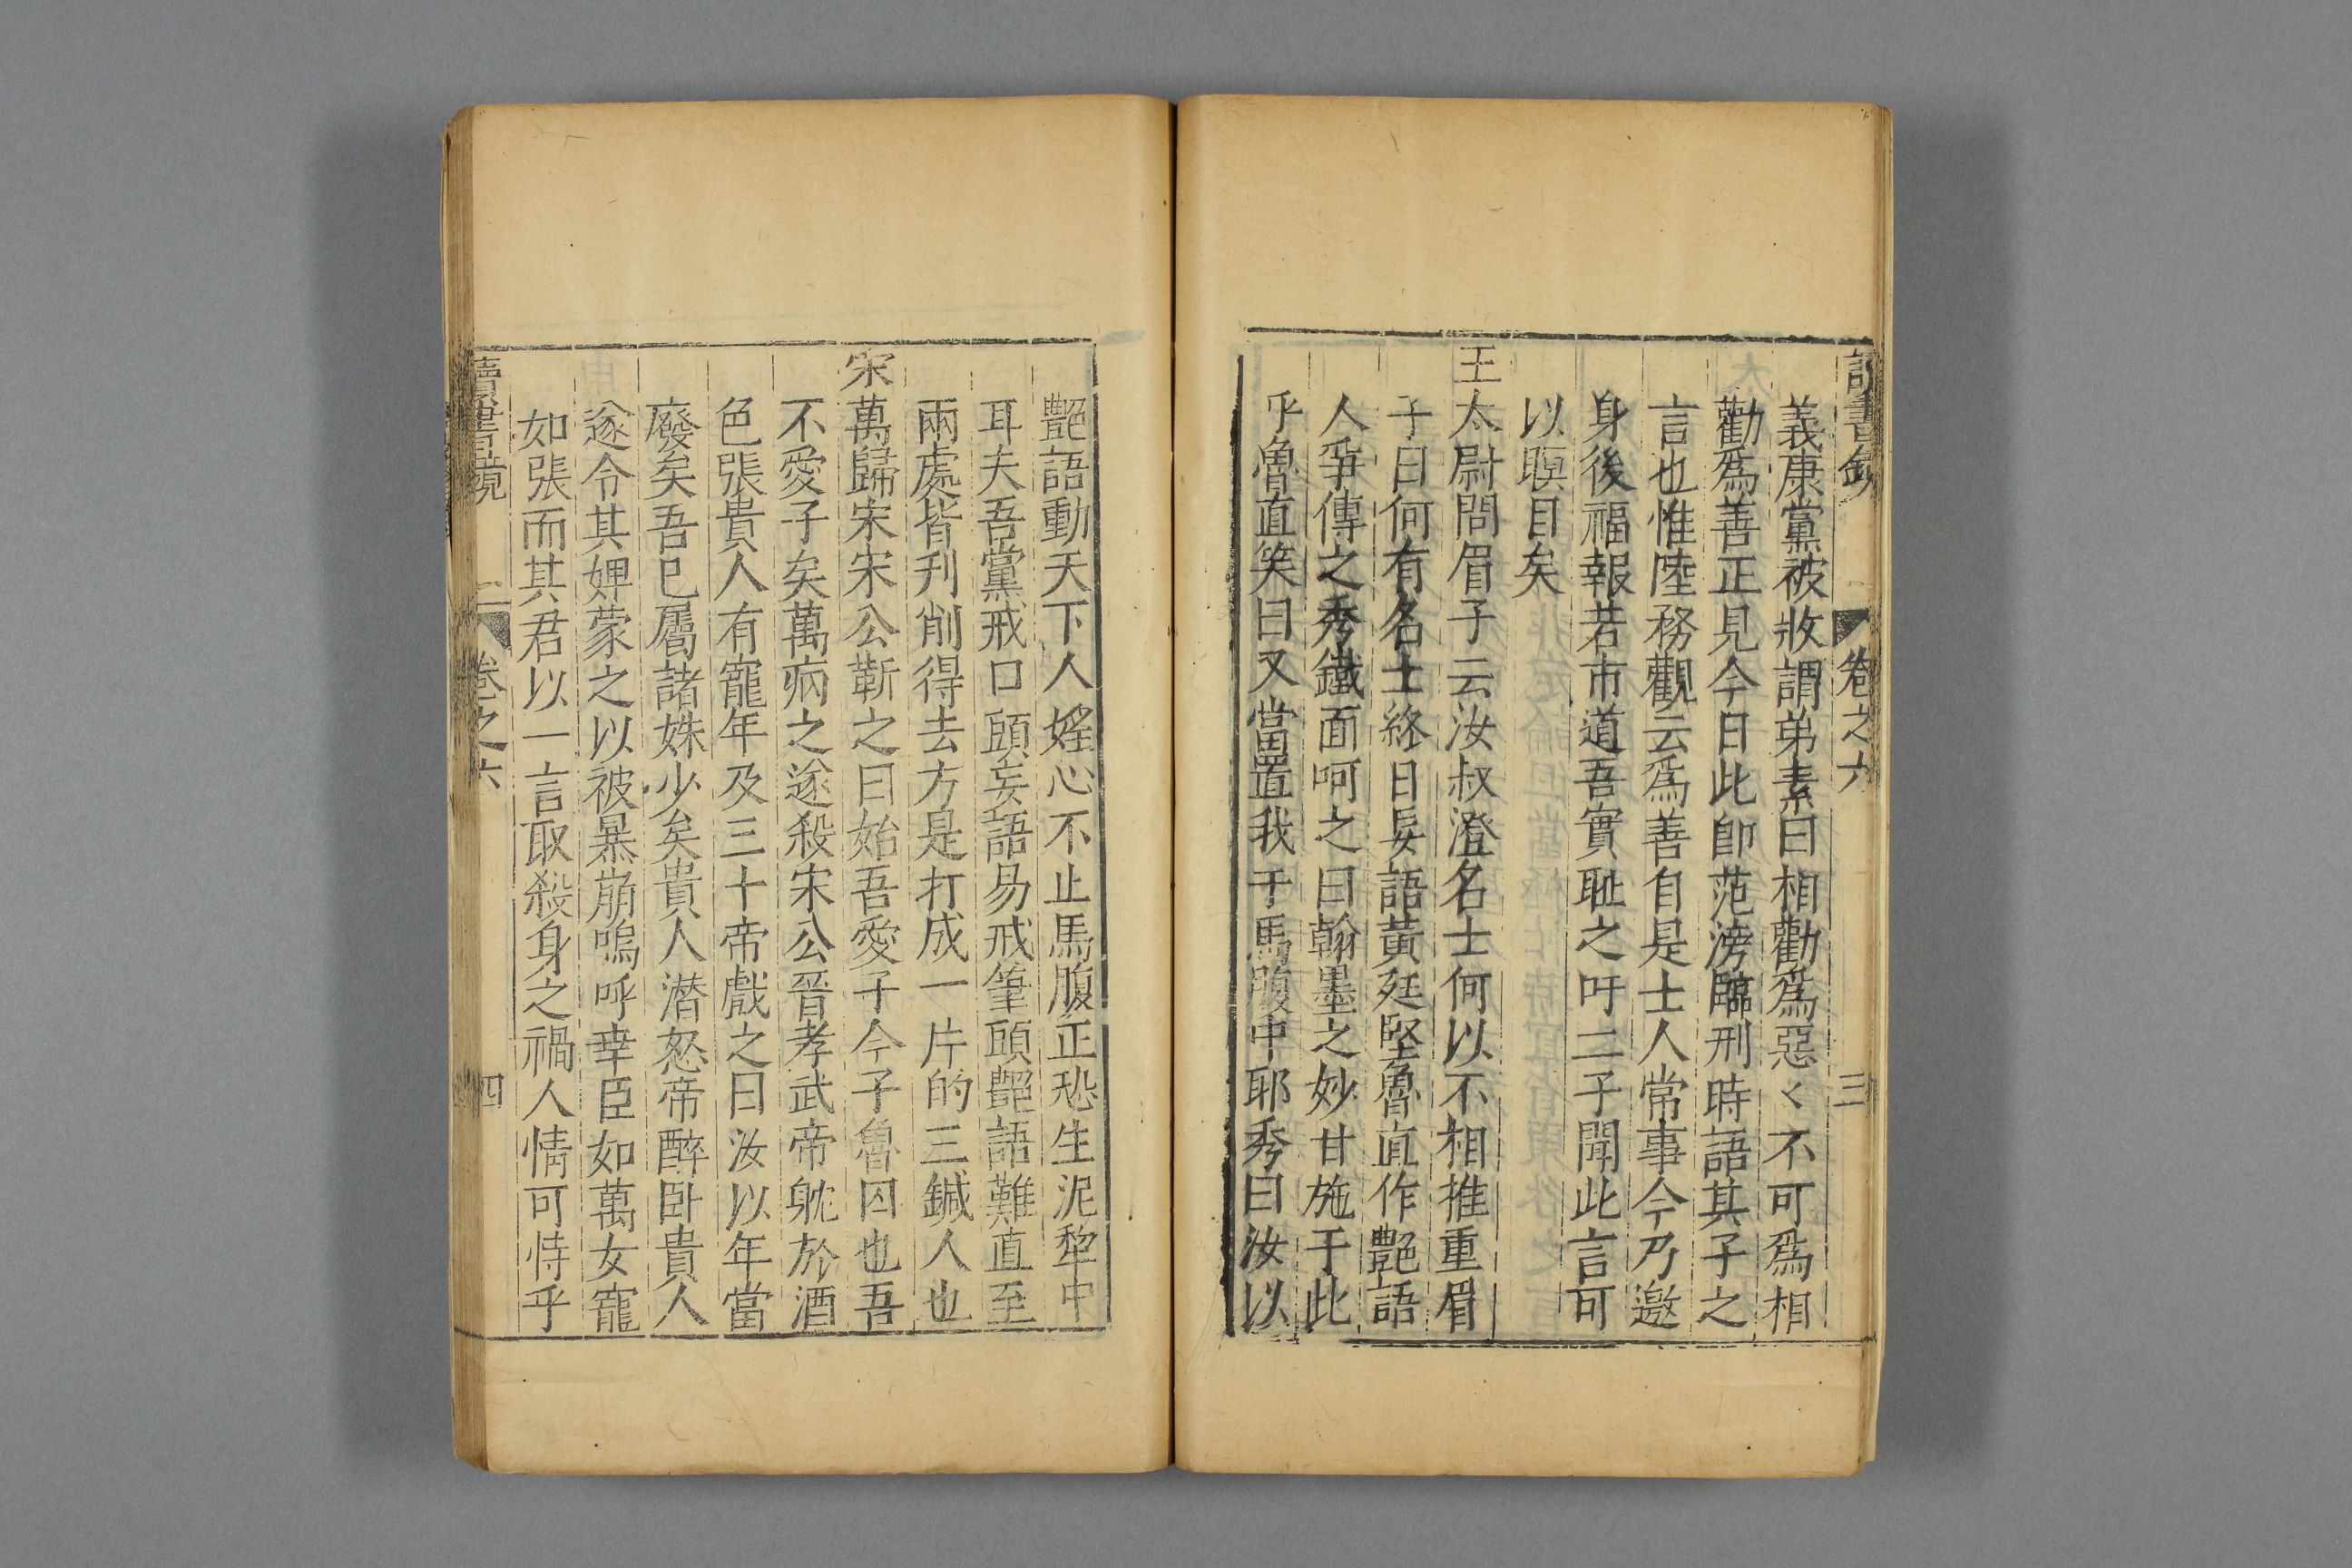 讀書鏡 卷之六 三
義康黨被收謂弟素曰相勸爲惡〻不可爲相
勸爲善正見今日此卽范滂臨刑時語其子之
言也惟陸務觀云爲善自是士人常事今乃邀
身後福報若市道吾實耻之吁二子聞此言可
以瞑目矣
王太尉問眉子云汝叔澄名士何以不相推重眉
子曰何有名士終日妄語黃廷堅魯直作艷語
人爭傳之秀鐵面呵之曰翰墨之妙甘施于此
乎魯直笑曰又當置我于馬腹中耶秀曰汝以
艷語動天下人婬心不止馬腹正恐生泥犂中
耳夫吾黨戒口頭妄語易戒筆頭艷語難直至
兩處皆刋削得去方是打成一片的三鍼人也
宋萬歸宋宋公靳之曰始吾愛子今子魯囚也吾
不愛子矣萬病之遂殺宋公晉孝武帝躭於酒
色張貴人有寵年及三十帝戲之曰汝以年當
廢矣吾已屬諸姝少矣貴人潛怒帝醉卧貴人
遂令其婢蒙之以被暴崩嗚呼幸臣如萬女寵
如張而其君以一言取殺身之禍人情可恃乎
讀書鏡 卷之六 四